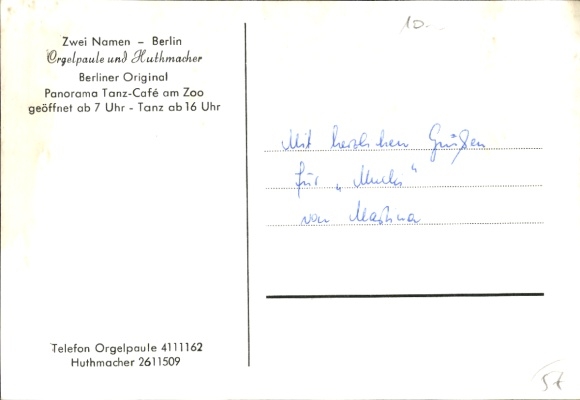 10.-
Zwei Namen – Berlin
Orgelpaule und Huthmacher
Berliner Original
Panorama Tanz-Café am Zoo
geöffnet ab 7 Uhr - Tanz ab 16 Uhr
Mit herzlichen Grüßen
für „Mucki"
von Martina
Telefon Orgelpaule 4111162
Huthmacher 2611509